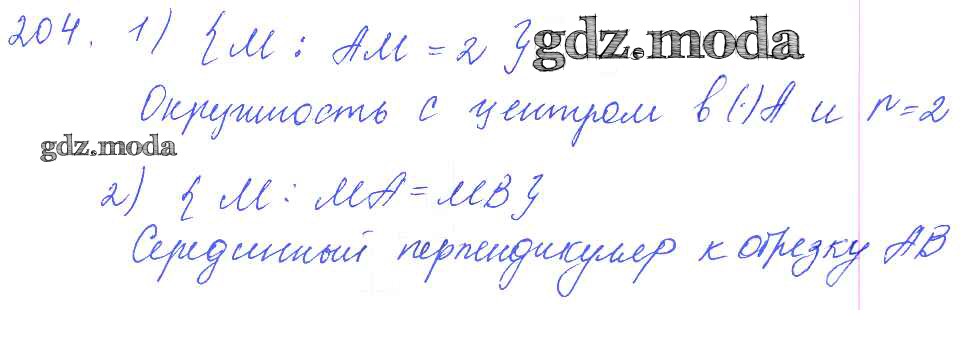 204. 1) { M : AM = 2 } gdz.moda
Окружность с центром в (·) A и r = 2
gdz.moda
2) { M : MA = MB }
Серединный перпендикуляр к отрезку AB